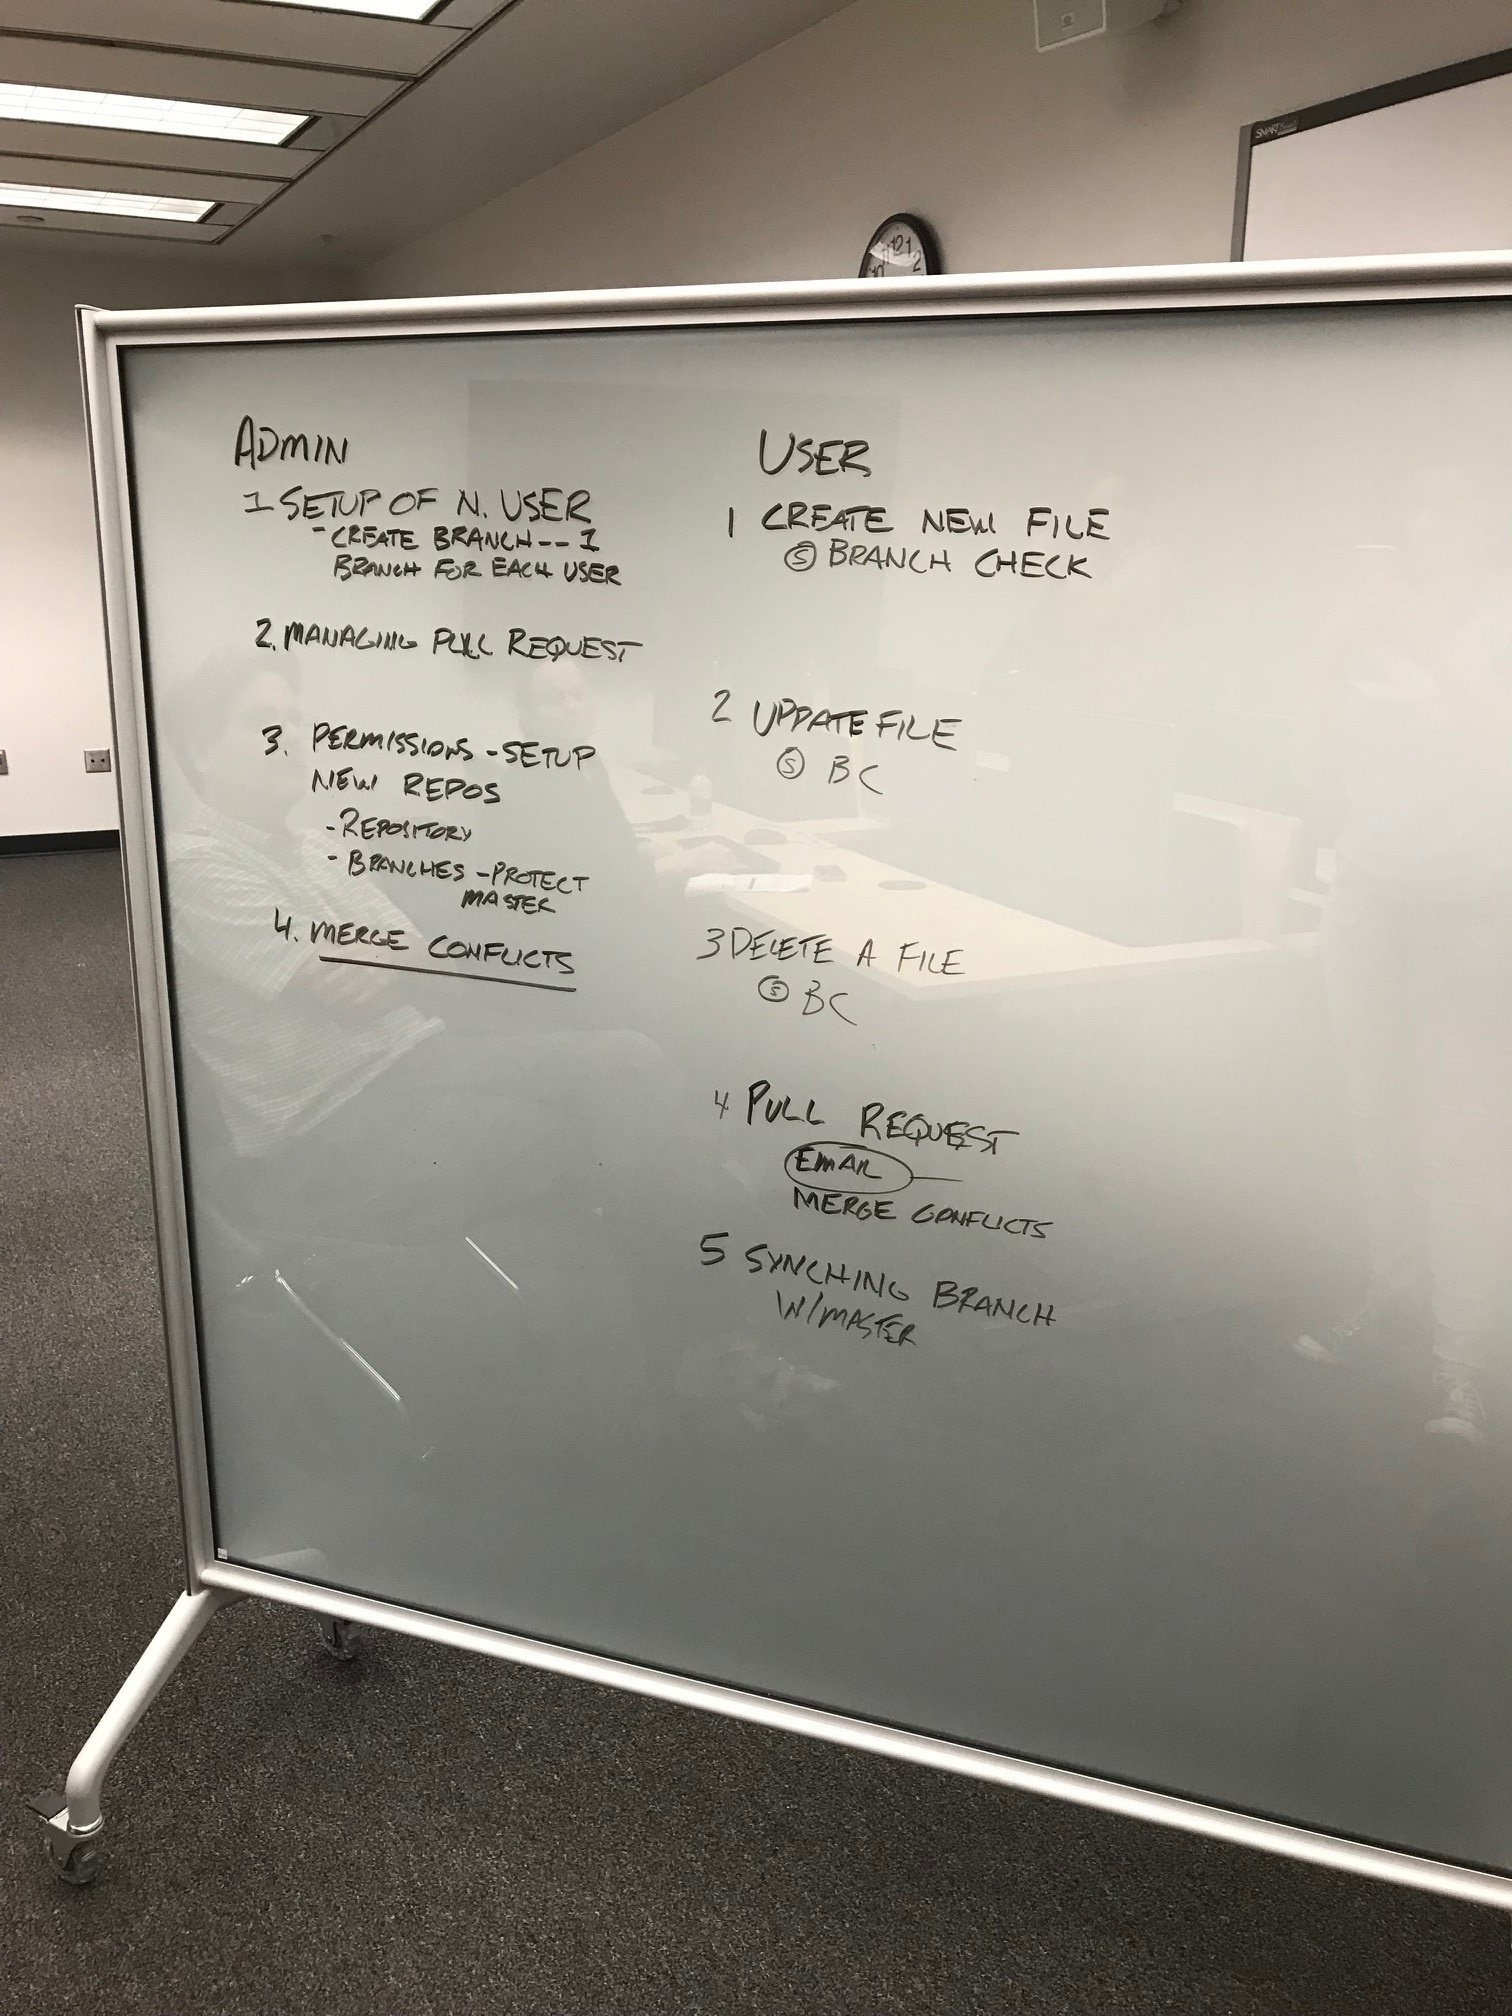 SMART
11 12 1
10 2
ADMIN
1 SETUP OF N. USER
- CREATE BRANCH -- 1
BRANCH FOR EACH USER
2. MANAGING PULL REQUEST
3. PERMISSIONS - SETUP
NEW REPOS
- REPOSITORY
- BRANCHES - PROTECT
MASTER
4. MERGE CONFLICTS
USER
1 CREATE NEW FILE
Ⓢ BRANCH CHECK
2 UPDATE FILE
Ⓢ BC
3 DELETE A FILE
Ⓢ BC
4 PULL REQUEST
EMAIL
MERGE CONFLICTS
5 SYNCHING BRANCH
W/MASTER